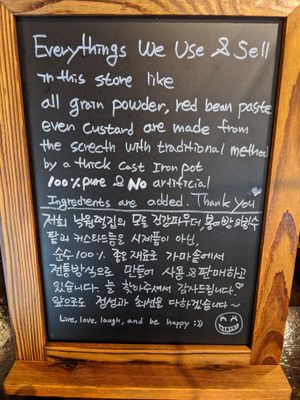 Everythings We Use & Sell
in this store like
all grain powder, red bean paste
even custard are made from
the screcth with traditional method
by a thick cast Iron pot
100% pure & No artificial
Ingredients are added. Thank you
저희 낙원떡집의 모든 곡물파우더, 붕어빵&빙수
팥과 커스터드등은 시제품이 아닌,
순수 100% 좋은 재료로 가마솥에서
전통방식으로 만들어 사용&판매하고
있습니다. 늘 찾아주셔서 감사드립니다.
앞으로도 정성과 최선을 다하겠습니다~
Live, love, laugh, and be happy :))